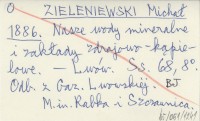 O ZIELENIEWSKI Michał
1886. Nasze wody mineralne
i zakłady zdrojowo-kąpie-
lowe. — Lwów. Ss. 68, 8°.
Odb. z Gaz. Lwowskiej. BJ
M. in. Rabka i Szczawnica.